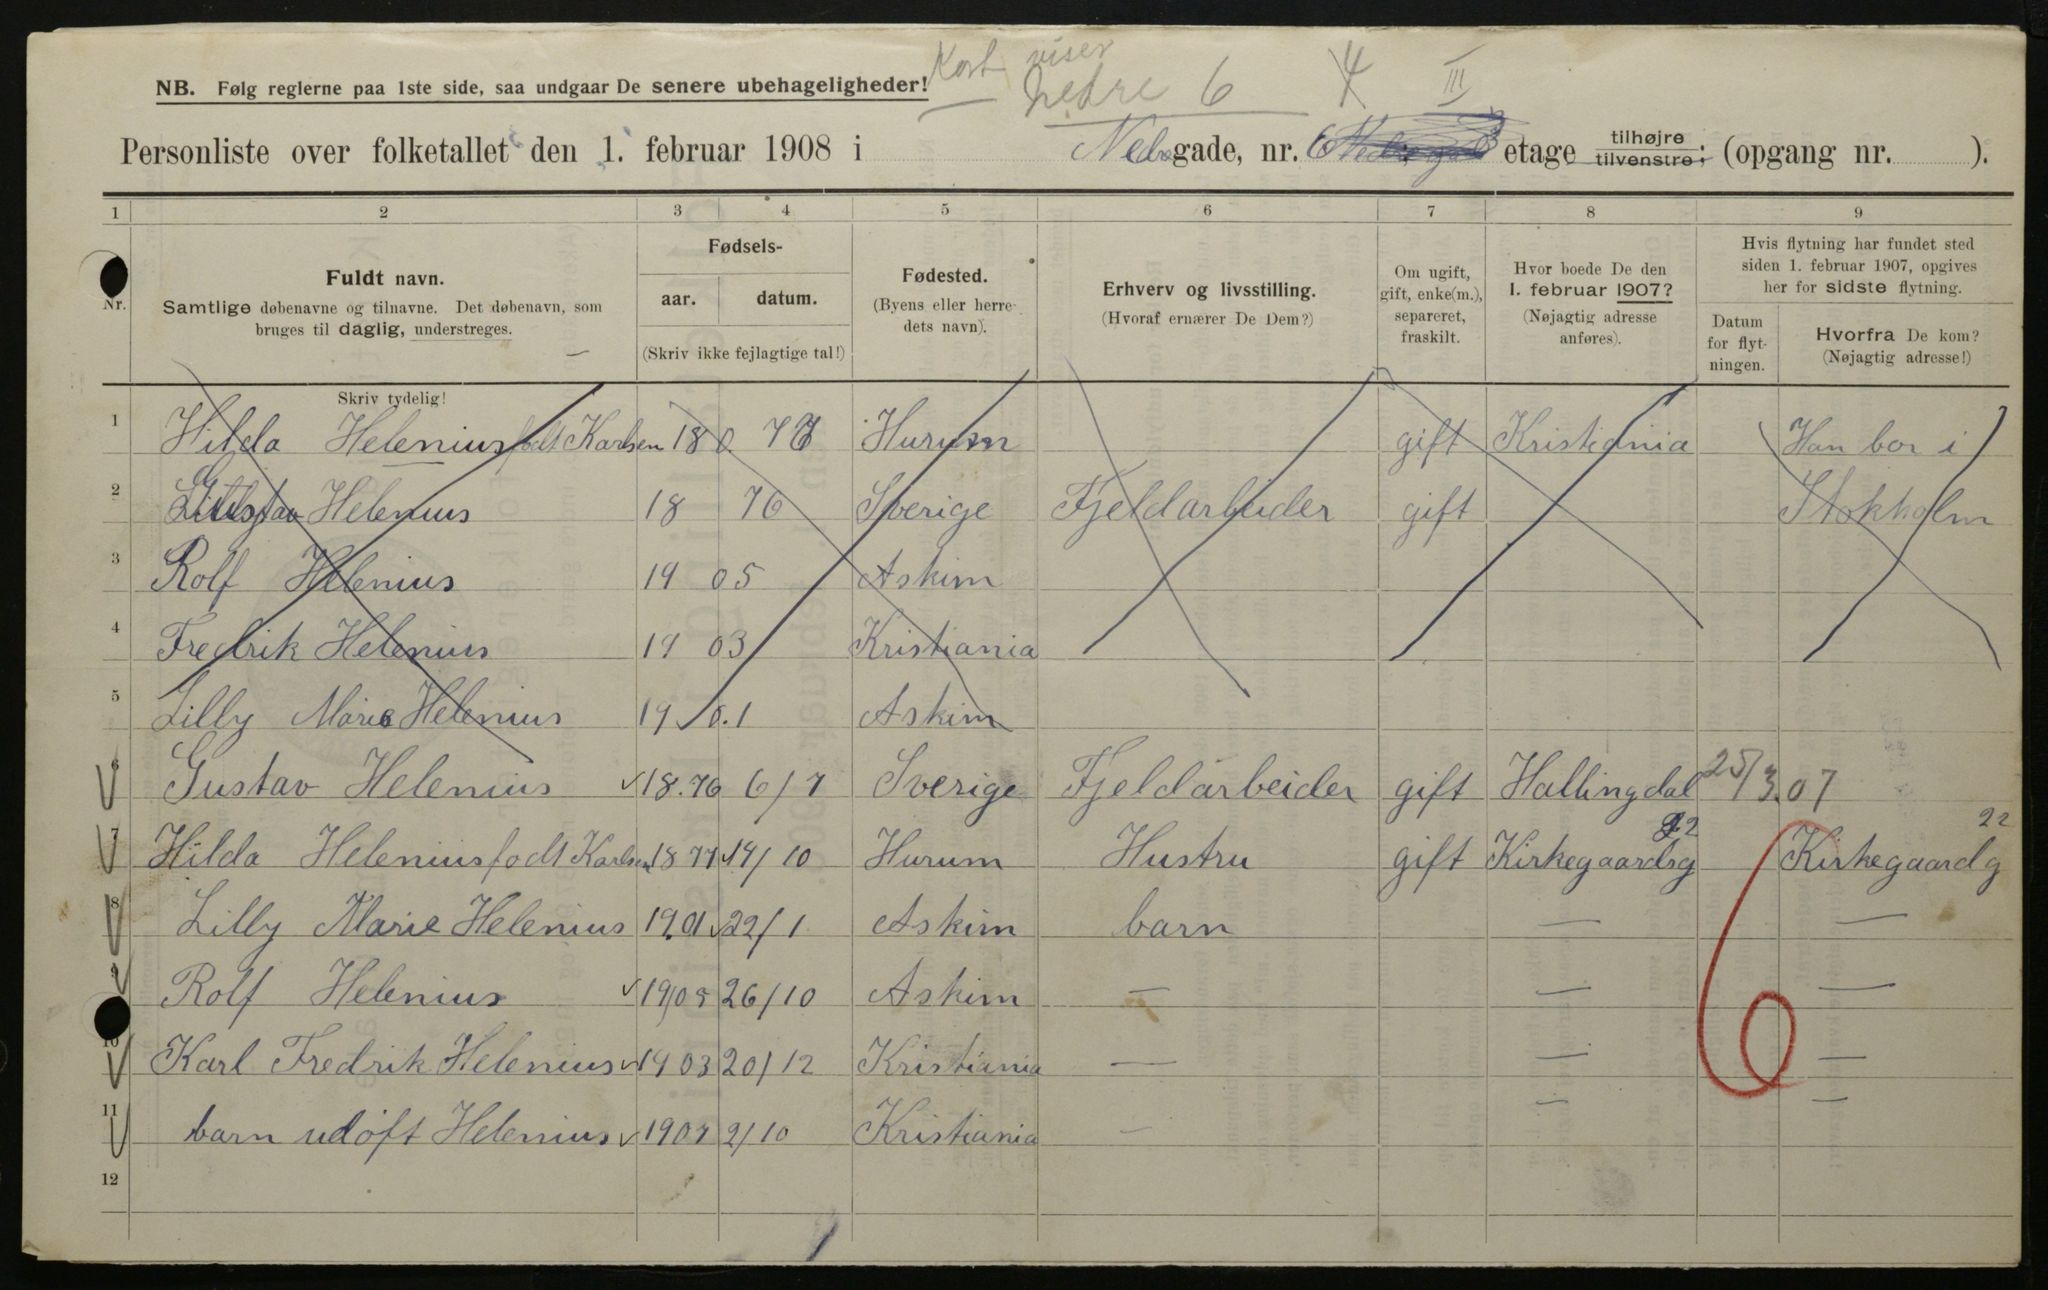 Kort viser
Nedre 6 4 III
NB. Følg reglerne paa 1ste side, saa undgaar De senere ubehageligheder!
Personliste over folketallet den 1. februar 1908 i Nedregade, nr. 6 etage tilhøjre tilvenstre; (opgang nr. ).
1 2 3 4 5 6 7 8 9
Nr.
Fuldt navn.
Samtlige døbenavne og tilnavne. Det døbenavn, som
bruges til daglig, understreges.
Skriv tydelig!
Fødsels-
aar. datum.
(Skriv ikke fejlagtige tal!)
Fødested.
(Byens eller herre-
dets navn).
Erhverv og livsstilling.
(Hvoraf ernærer De Dem?)
Om ugift,
gift, enke(m.),
separeret,
fraskilt.
Hvor boede De den
1. februar 1907?
(Nøjagtig adresse
anføres).
Hvis flytning har fundet sted
siden 1. februar 1907, opgives
her for sidste flytning.
Datum
for flyt-
ningen.
Hvorfra De kom?
(Nøjagtig adresse!)
1 Hilda Helenius født Karlsen 18 77 Hurum gift Kristiania Han bor i
2 Gustav Helenius 18 76 Sverige Fjeldarbeider gift Stokholm
3 Rolf Helenius 19 05 Askim
4 Fredrik Helenius 19 03 Kristiania
5 Lilly Marie Helenius 19 0.1 Askim
6 Gustav Helenius 18.76 6/7 Sverige Fjeldarbeider gift Hallingdal 25/3.07
7 Hilda Helenius fodt Karlsen 1877 14/10 Hurum Hustru gift Kirkegaardsg 22 Kirkegaardg 22
8 Lilly Marie Helenius 1901 22/1 Askim barn — —
9 Rolf Helenius 1905 26/10 Askim — — —
10 Karl Fredrik Helenius 1903 20/12 Kristiania — — —
11 barn udøft Helenius 1907 2/10 Kristiania — — —
12
6